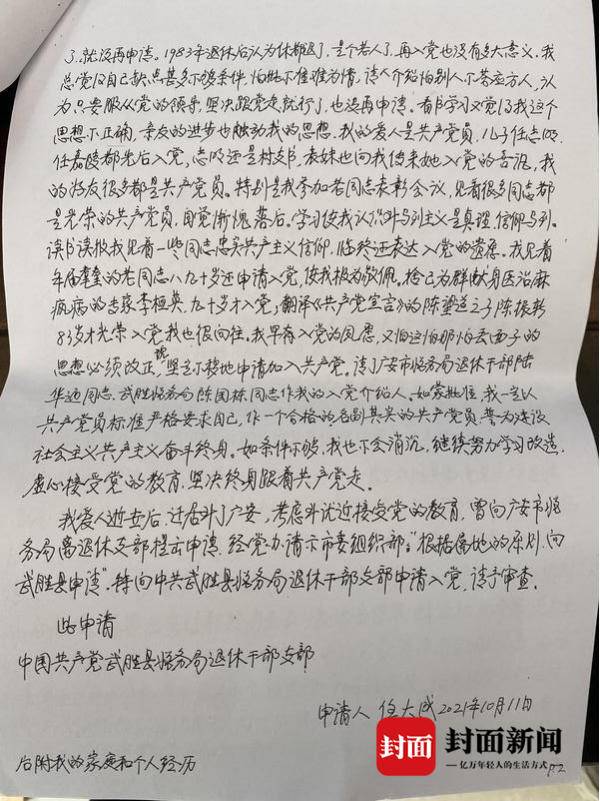 了就没再申请。1983年退休后认为休都退了,是个老人了,再入党也没有多大意义。我
总觉得自己缺点甚多不够条件,怕批不准难为情,请人介绍怕别人不答应为人,认
为只要服从党的领导,坚决跟党走就行了,也没再申请。看书学习又觉得我这个
思想不正确,亲友的进步也触动我的思想。我的爱人是共产党员,儿子任志
任嘉陵都先后入党,志还是村支书,表妹也向我传来她入党的喜讯,我
的好友很多都是共产党员。特别是我参加老同志表彰会议,见着很多同志都
是光荣的共产党员,自觉惭愧落后。学习使我认识马列主义是真理,信仰马列。
读书读报我见着一些同志忠实共产主义信仰,临终还表达入党的遗愿。我见着
年届耄耋的老同志八九十岁还申请入党,使我极为敬佩。舍己为群献身医治麻
疯病的专家李桓英,九十岁才入党;翻译《共产党宣言》的陈望道之子陈振新
83岁才光荣入党,我也很向往。我早有入党的夙愿,又怕这怕那怕丢面子的
思想必须改正,坚定不移地申请加入共产党。请了广安市税务局退休干部陆
华迪同志、武胜税务局陈国栋同志作我的入党介绍人。如蒙批准,我一定以
共产党员标准严格要求自己,作一个合格的名副其实的共产党员,誓为建设
社会主义共产主义奋斗终身。如条件不够,我也不会消沉,继续努力学习改造,
虚心接受党的教育,坚决终身跟着共产党走。
我爱人逝世后,迁居到了广安,考虑到就近接受党的教育,曾向广安市税
务局离退休支部提出申请,经党办请示市委组织部:“根据属地的原则,向
武胜县申请”。特向中共武胜县税务局退休干部支部申请入党,请予审查。
此申请
中国共产党武胜县税务局退休干部支部
申请人 任大成 2021年10月11日
后附我的家庭和个人经历
封面 封面新闻
亿万年轻人的生活方式
P.2